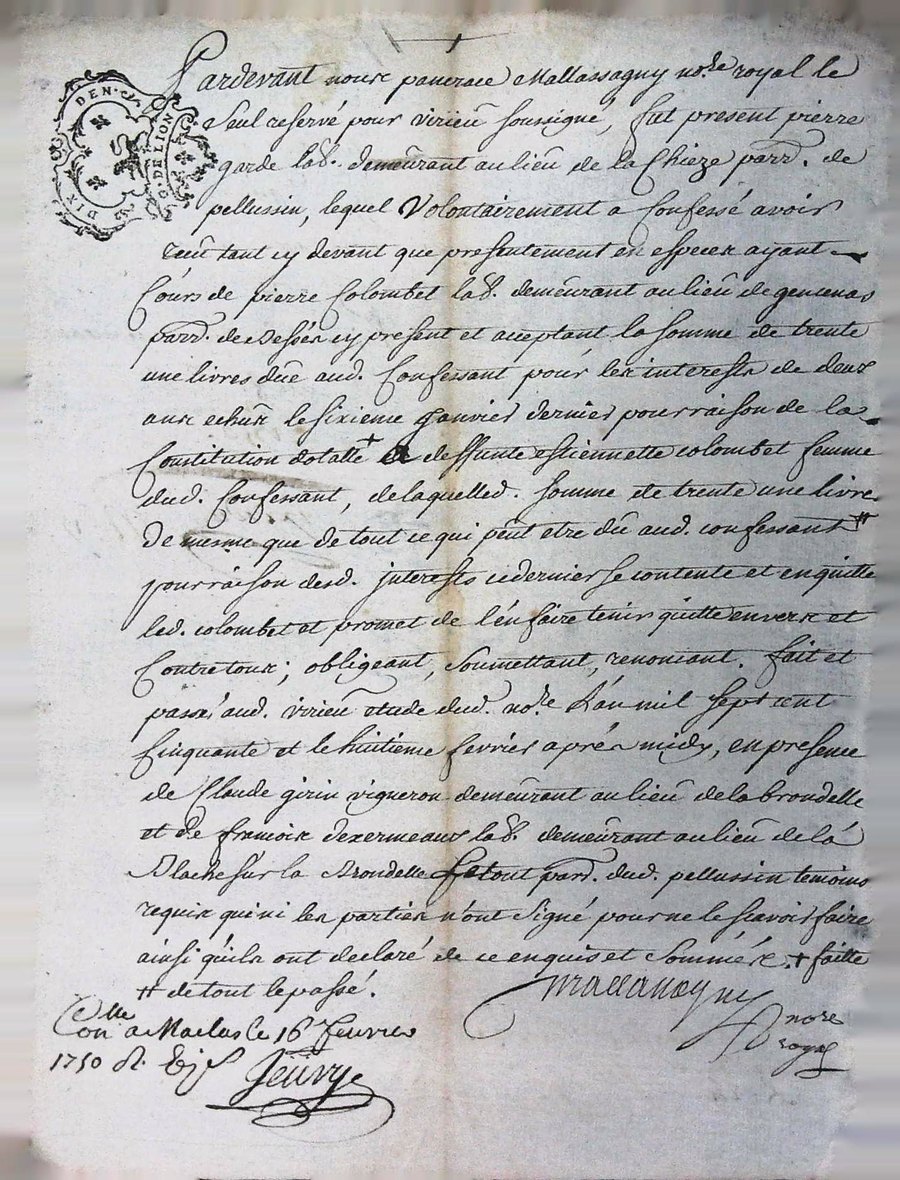 DIX DEN. G. DE LION
Pardevant nous pancrace Mallassagny no.re royal le
Seul reservé pour virieu soussigné, fut present pierre
garde lab.r demeurant au lieu de la Chieze parr. de
pellussin, lequel Volontairement a Confessé avoir
receu tant cy devant que presentement en especes ayant
Cours de pierre Colombet lab.r demeurant au lieu de
parr. de Bessés cy present et aceptant la somme de trente
une livres düe aud. Confessant pour les interests de deux
ans echus le sixieme Janvier dernier pour raison de la
Constitution dotalle + A deffunte estiennette colombet femme
dud. Confessant, de laquelled. somme de trente une livre
de mesme que de tout ce qui peut etre dû aud. confessant #
pour raison desd. interests ce dernier se contente et en quitte
led. colombet et promet de l'en faire tenir quitte envers et
Contre tous; obligeant, soumettant, renoncant. fait et
passé aud. virieu etude dud. no.re L'an mil sept cent
Cinquante et le huitieme fevrier aprés midy, en presence
de Claude girin vigneron demeurant au lieu de la brondelle
et de francois dexermeaux lab.r demeurant au lieu de la
Blache sur la Brondelle le tout parr. dud. pellussin temoins
requis qui ni les parties n'ont signé pour ne le scavoir faire
ainsi qu'ils ont declaré de ce enquis et sommés. + faitte
# de tout le passé.
Mallassagny
no.re
royal
C.lle
on a Maclas le 16 fevrier
1750 R.
Jeuvy